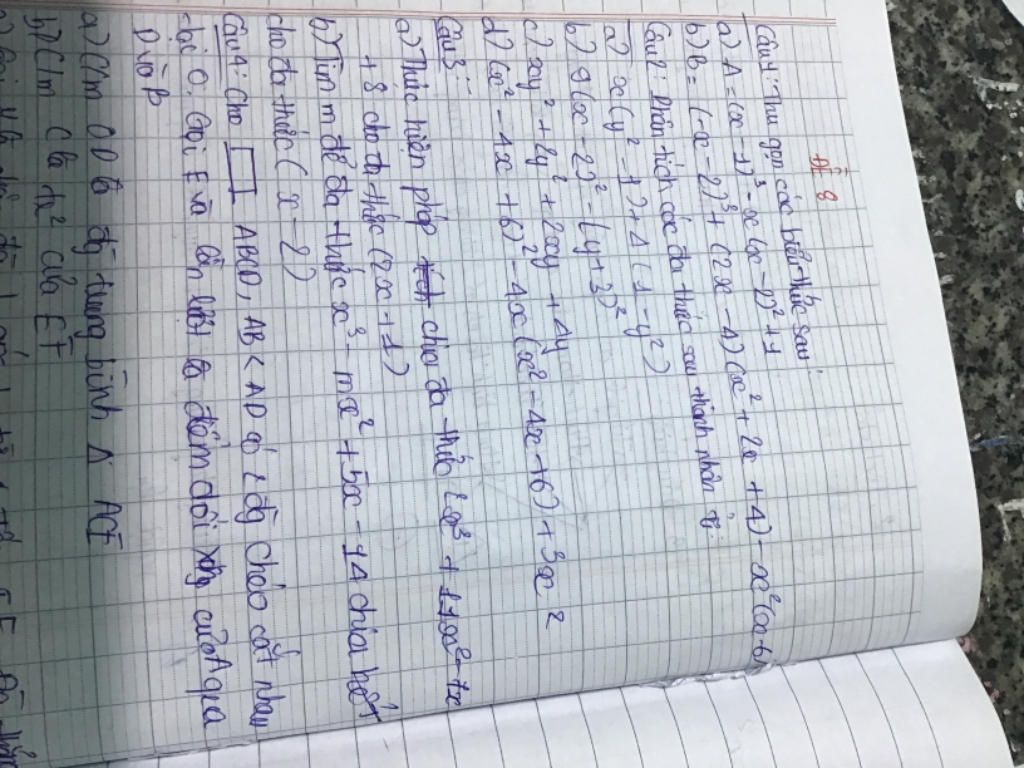 ĐỀ 8
Câu 1: Thu gọn các biểu thức sau:
a) A = (x - 1)³ - x(x - 2)² + 1
b) B = (x - 2)³ + (2x - 4)(x² + 2x + 4) - x²(x - 6)
Câu 2: Phân tích các đa thức sau thành nhân tử:
a) x(y² - 1) + 1(1 - y²)
b) 9(x - 2)² - (y + 3)²
c) xy² + 2y² + 2xy + 4y
d) (x² - 4x + 6)² - 4x(x² - 4x + 6) + 3x²
Câu 3:
a) Thực hiện phép chia đa thức 2x³ + 11x² - 7x
+ 8 cho đa thức (2x + 1)
b) Tìm m để đa thức x³ - mx² + 5x - 14 chia hết
cho đa thức (x - 2)
Câu 4: Cho ABCD, AB < AD có 2 đg chéo cắt nhau
tại O. Gọi E và lần lượt là điểm đối xứng của A qua
D và B
a) C/m OD là đg trung bình Δ ACE
b) C/m C là tđ của EF